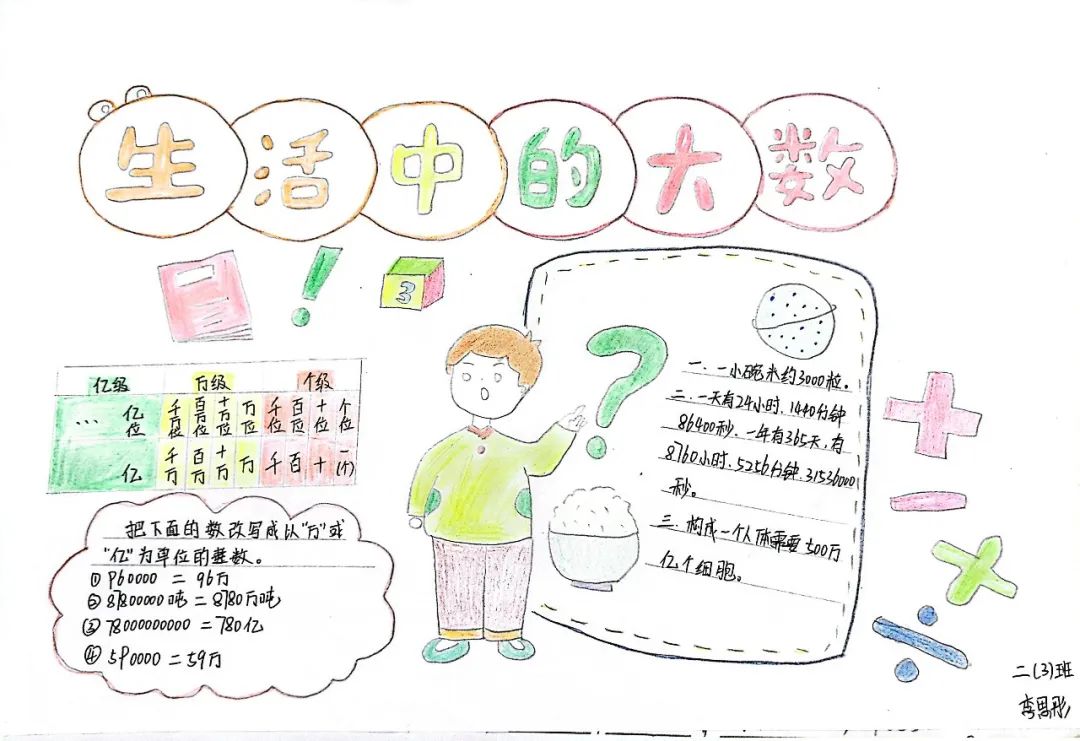 生活中的大数
3
亿级 万级 个级
… 亿位 千万位 百万位 十万位 万位 千位 百位 十位 个位
亿 千万 百万 十万 万 千 百 十 一(个)
把下面的数改写成以"万"或
"亿"为单位的整数。
① 960000 = 96万
② 87800000吨 = 8780万吨
③ 78000000000 = 780亿
④ 590000 = 59万
?
一. 一小碗米约3000粒。
二. 一天有24小时. 1440分钟
86400秒. 一年有365天, 有
8760小时. 5256分钟. 31536000
秒。
三. 构成一个人体需要500万
亿个细胞。
二(3)班
李思彤